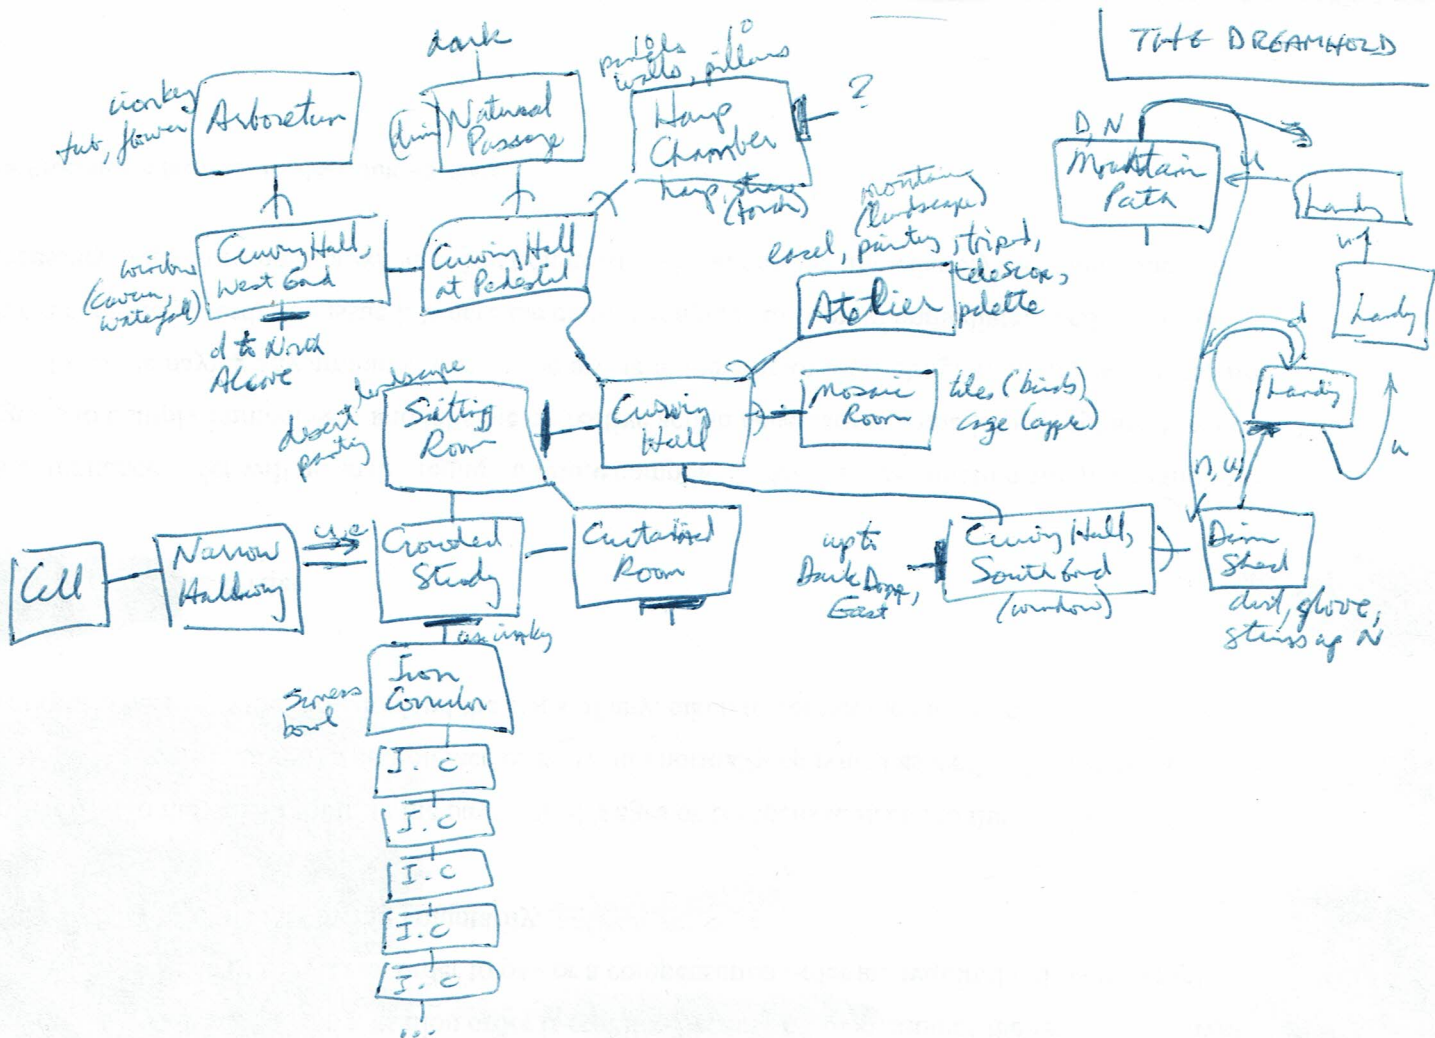 THE DREAMHOLD
dark
tub, flower
Arboretum
(dim)
Natural
Passage
10 10
panels
walls, pillars
Harp
Chamber
?
harp,
(torch)
D, N
Mountain
Path
u
Landg
u
Landg
window
(cavern,
waterfall)
Curving Hall,
West End
Curving Hall
at Pedestal
mountain
(landscape)
easel, painting, tripod,
telescope,
palette
Atelier
d to North
Alcove
desert landscape
painting
Sitting
Room
Curving
Hall
Mosaic
Room
tiles (birds)
cage (apple)
d
Landg
u
n, u
Cell
Narrow
Hallway
w/e
Crowded
Study
Curtained
Room
up to
Dark Dome,
East
Curving Hall,
South End
(window)
Dim
Shed
dirt, glove,
stairs up N
Iron
Corridor
bowl
I. C
I. C
I. C
I. C
I. C
...